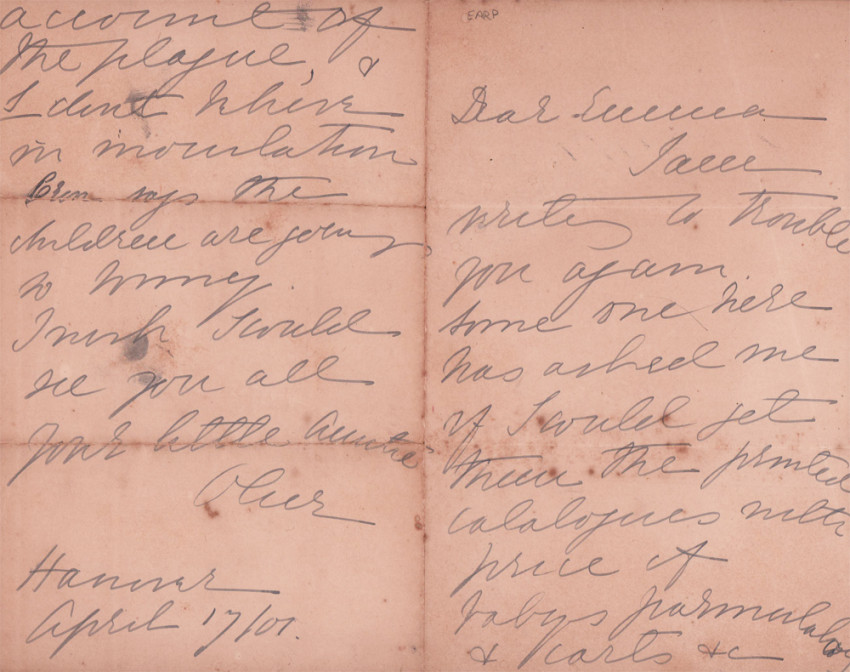 EARP
Dear Emma
I am
writing to trouble
you again.
Some one here
has asked me
if I could get
them the printed
catalogues with
price of
babys
& carts &c
account of
the plague, &
I dont believe
in inoculation
says the
children are going
to
I wish I could
see you all
your little Auntie
Hanover
April 17/01.